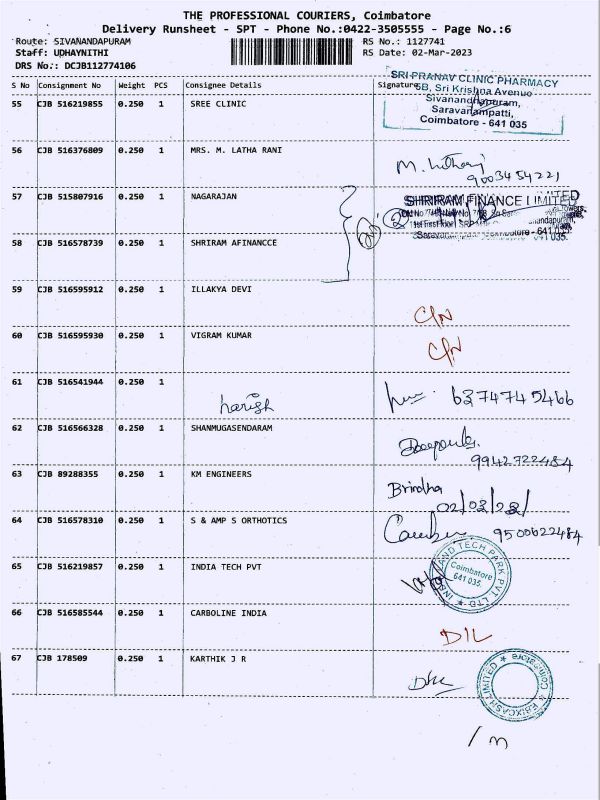 THE PROFESSIONAL COURIERS, Coimbatore
Delivery Runsheet - SPT - Phone No.:0422-3505555 - Page No.:6
Route: SIVANANDAPURAM RS No.: 1127741
Staff: UDHAYNITHI RS Date: 02-Mar-2023
DRS No.: DCJB112774106
S No Consignment No Weight PCS Consignee Details Signature
55 CJB 516219855 0.250 1 SREE CLINIC
SRI PRANAV CLINIC PHARMACY
5B, Sri Krishna Avenue
Sivanandhapuram,
Saravanampatti,
Coimbatore - 641 035
56 CJB 516376809 0.250 1 MRS. M. LATHA RANI
9003454221
57 CJB 515807916 0.250 1 NAGARAJAN
SHRIRAM FINANCE LIMITED
58 CJB 516578739 0.250 1 SHRIRAM AFINANCCE
59 CJB 516595912 0.250 1 ILLAKYA DEVI
C/N
60 CJB 516595930 0.250 1 VIGRAM KUMAR
C/N
61 CJB 516541944 0.250 1
harish 6374745466
62 CJB 516566328 0.250 1 SHANMUGASENDARAM
9942722484
63 CJB 89288355 0.250 1 KM ENGINEERS
Brindha
02/03/23/
64 CJB 516578310 0.250 1 S & AMP S ORTHOTICS
9500622484
65 CJB 516219857 0.250 1 INDIA TECH PVT
LAND TECH PARK PVT LTD
Coimbatore
641 035
66 CJB 516585544 0.250 1 CARBOLINE INDIA
D/L
67 CJB 178509 0.250 1 KARTHIK J R
EBIXCASH LIMITED * COIMBATORE